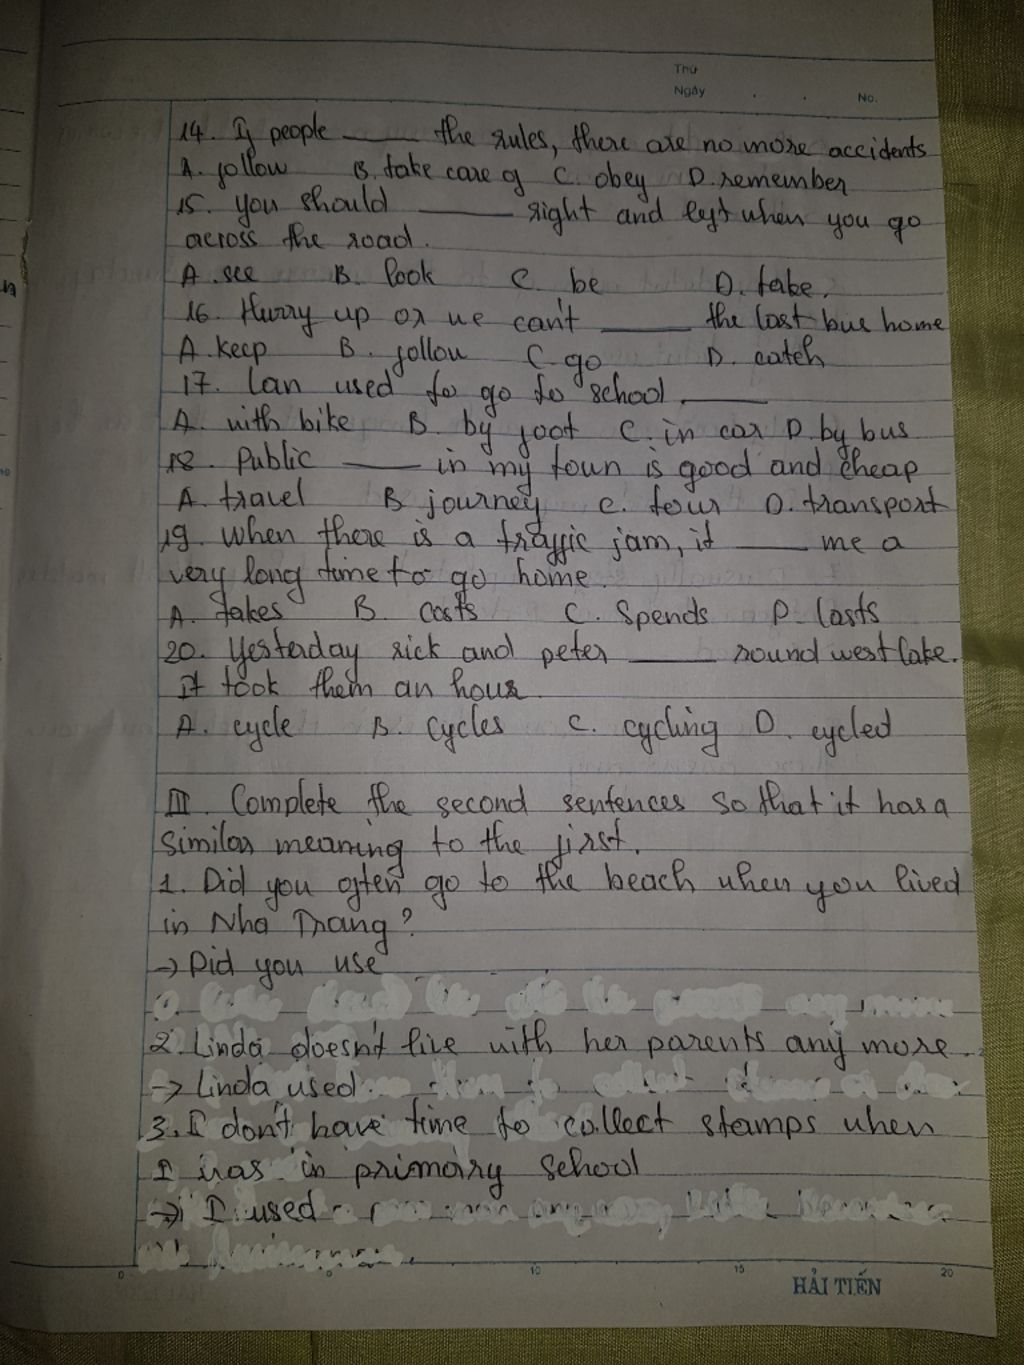 Thứ
Ngày . . No.
14. If people ____ the rules, there are no more accidents
A. follow B. take care of C. obey D. remember
15. you should ____ right and left when you go
across the road.
A. see B. look C. be D. take.
16. Hurry up or we can't ____ the last bus home
A. keep B. follow C. go D. catch
17. Lan used to go to school ____
A. with bike B. by foot C. in car D. by bus
18. Public ____ in my town is good and cheap
A. travel B journey C. tour D. transport
19. When there is a traffic jam, it ____ me a
very long time to go home.
A. takes B. costs C. Spends D. lasts
20. Yesterday rick and peter ____ round west lake.
It took them an hour.
A. cycle B. Cycles C. cycling D. cycled
III. Complete the second sentences so that it has a
similar meaning to the first.
1. Did you often go to the beach when you lived
in Nha Trang?
→ Did you use
2. Linda doesn't live with her parents any more.
→ Linda used
3. I don't have time to collect stamps when
I was in primary school
→ I used
0 10 15 20
HẢI TIẾN